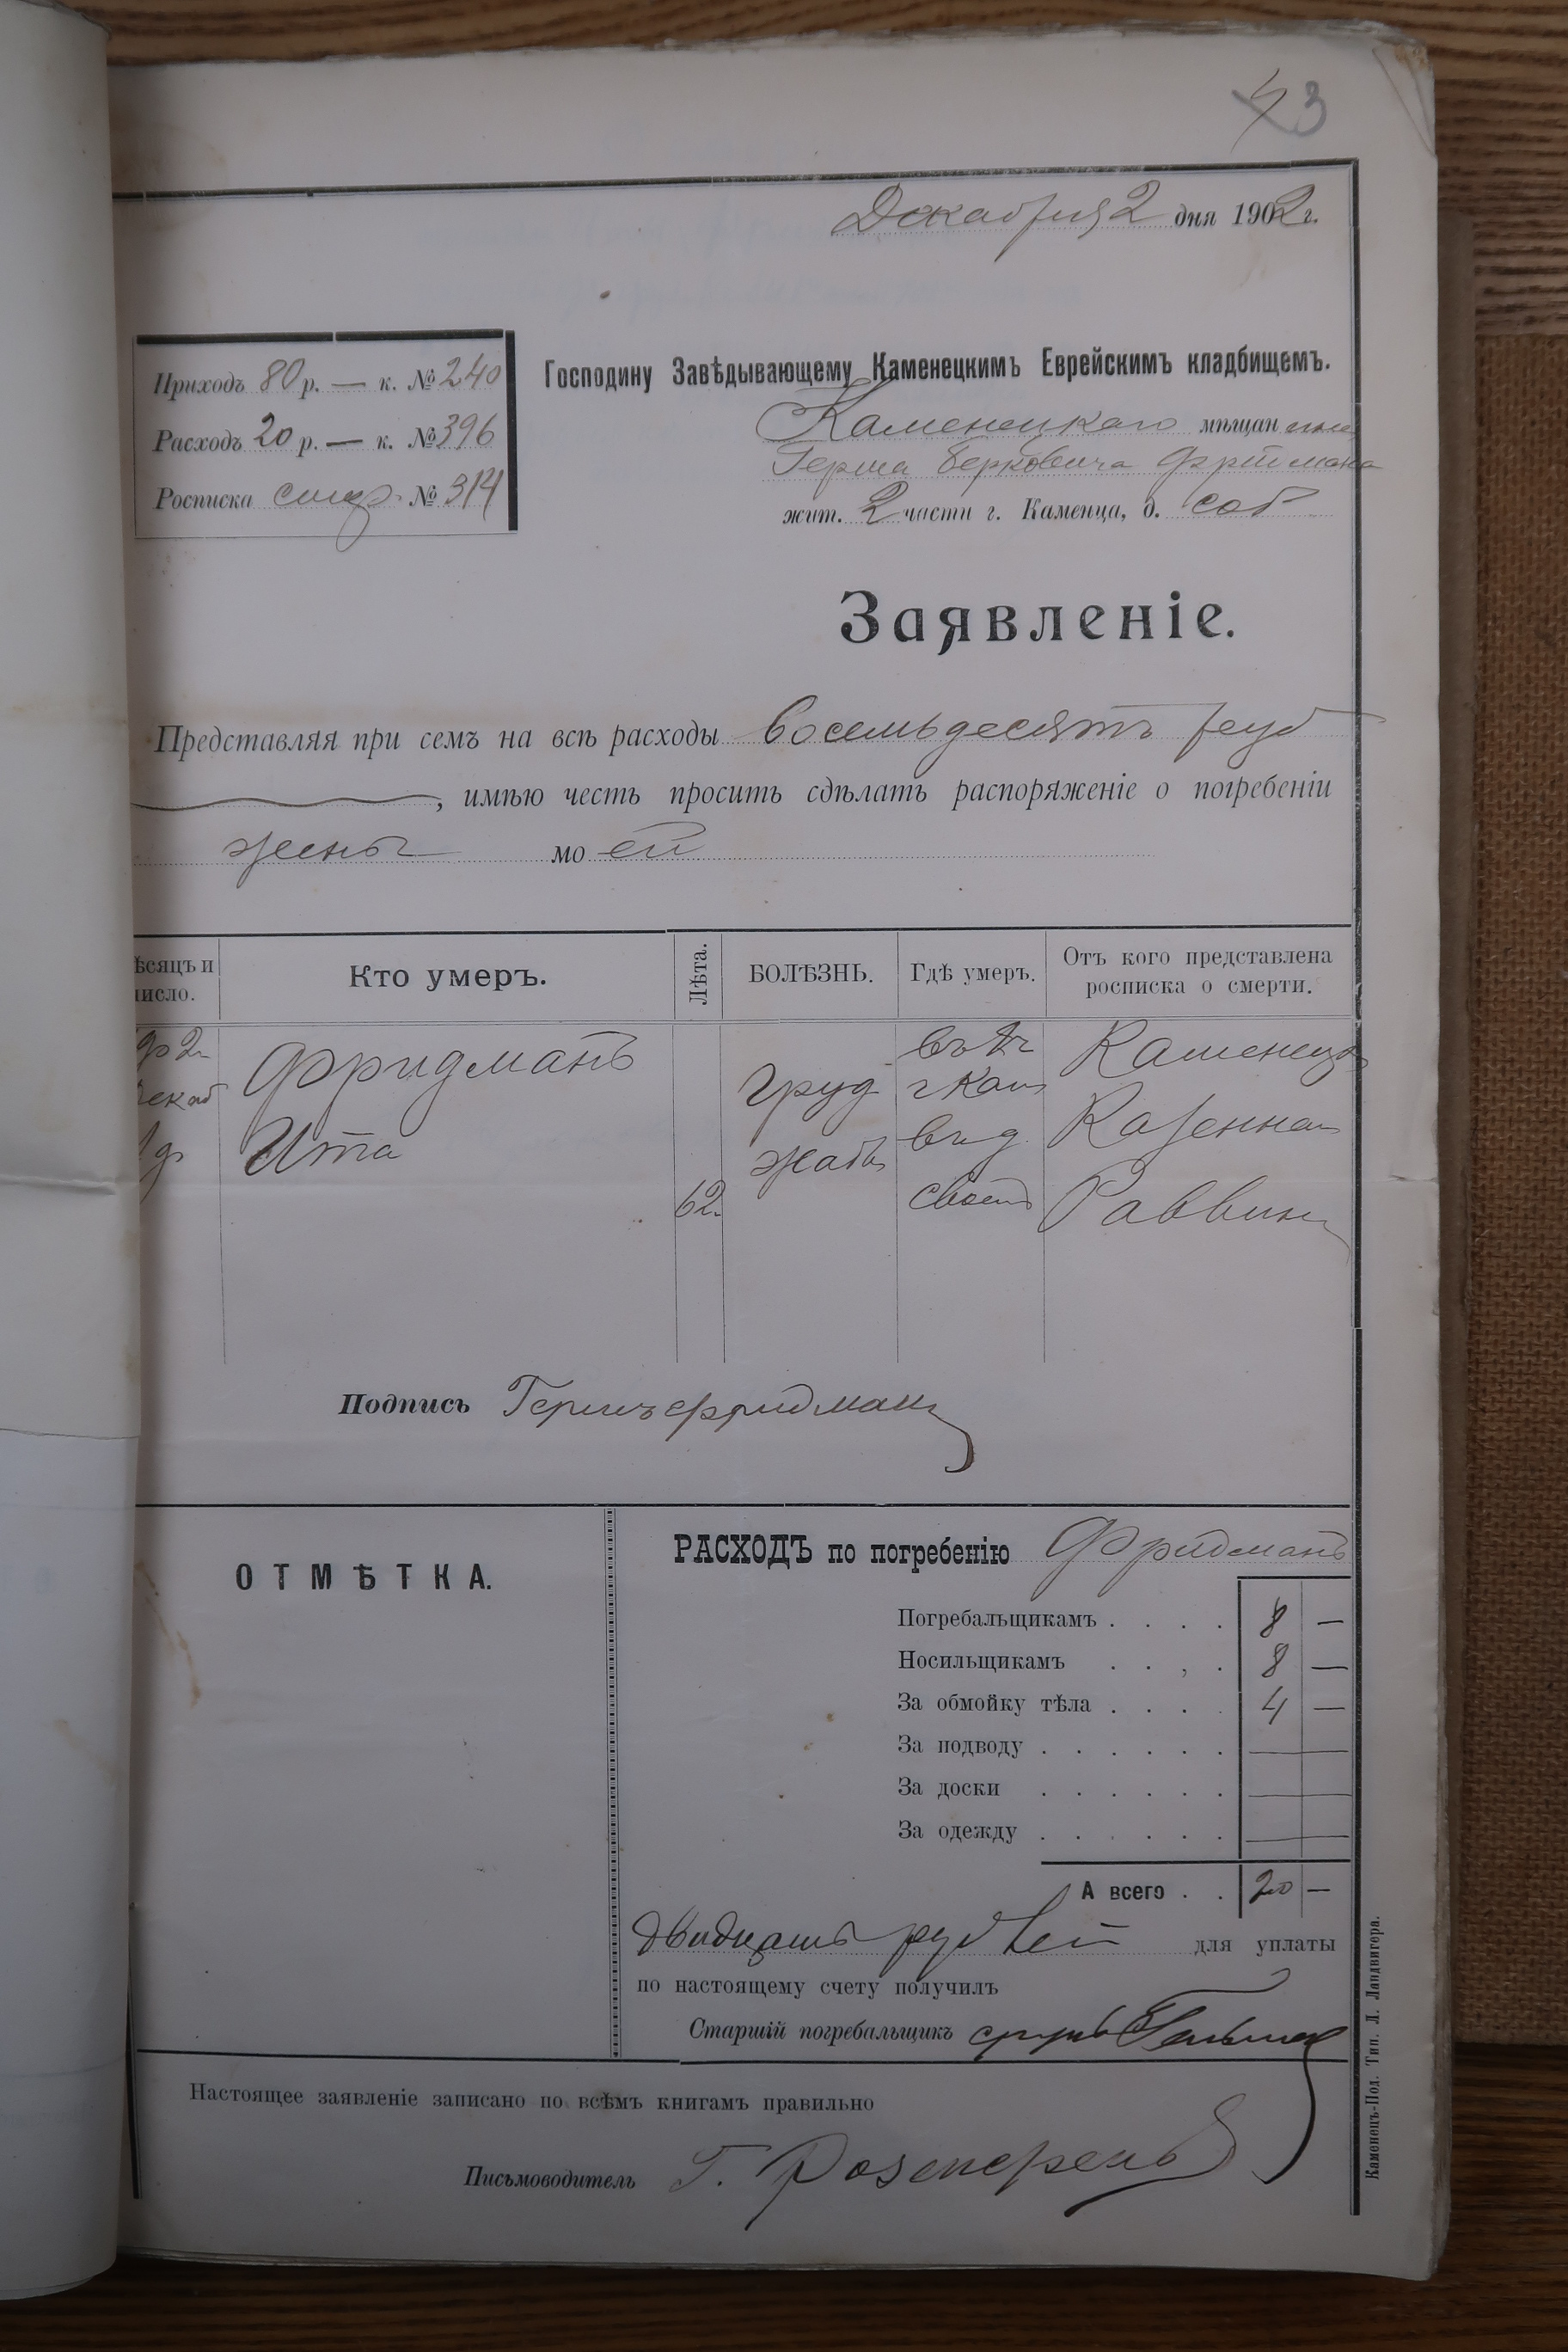 3
Декабря 2 дня 1902 г.
Приходъ 80 р. — к. № 240
Расходъ 20 р. — к. № 396
Росписка смер. № 314
Господину Завѣдывающему Каменецкимъ Еврейскимъ кладбищемъ.
Каменецкаго мѣщанина
Герша Берковича Фридмана
жит. 2 части г. Каменца, д. соб
Заявленіе.
Представляя при семъ на всѣ расходы восемьдесятъ руб
, имѣю честь просить сдѣлать распоряженіе о погребеніи
жены моей
ѣсяцъ и число. Кто умеръ. Лѣта. БОЛѢЗНЬ. Гдѣ умеръ. Отъ кого представлена росписка о смерти.
Фридманъ
Ита
62
Груд
жаба
г Кам
въ д.
своемъ
Каменецк
Казеннаго
Раввина
Подпись Гершъ Фридманъ
ОТМѢТКА.
РАСХОДЪ по погребенію Фридманъ
Погребальщикамъ . . . . 8 —
Носильщикамъ . . , . 8 —
За обмойку тѣла . . . . 4 —
За подводу . . . . . . —
За доски . . . . . . —
За одежду . . . . . . —
А всего . . 20 —
Двадцать рублей для уплаты
по настоящему счету получилъ
Старшій погребальщикъ
Настоящее заявленіе записано по всѣмъ книгамъ правильно
Письмоводитель Г.
Каменецъ-Под. Тип. Л. Ландвигера.